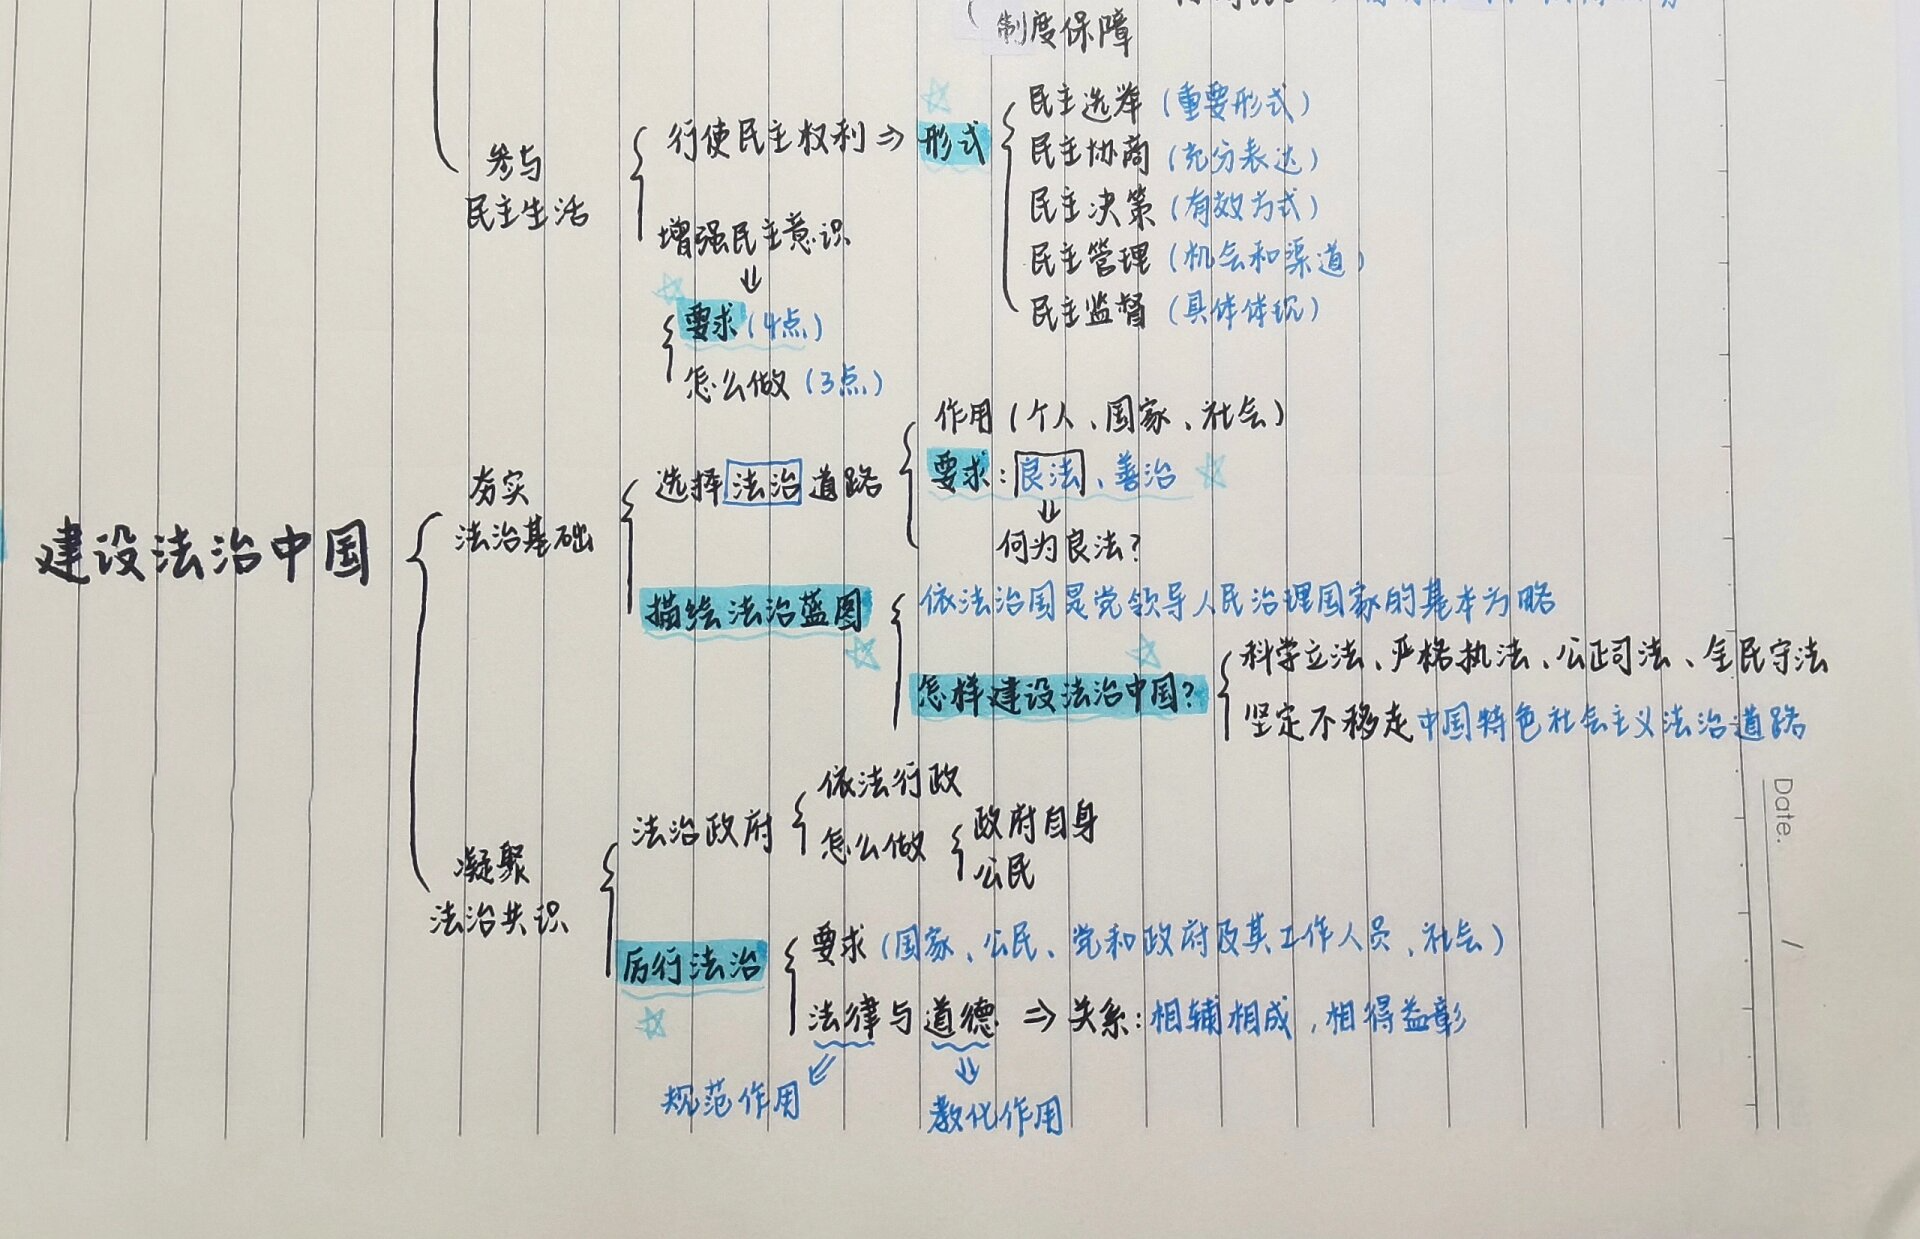 制度保障
参与
民主生活
行使民主权利⇒形式
民主选举(重要形式)
民主协商(充分表达)
民主决策(有效方式)
民主管理(机会和渠道)
民主监督(具体体现)
增强民主意识
⇓
要求(4点)
怎么做(3点)
建设法治中国
夯实
法治基础
选择法治道路
作用(个人、国家、社会)
要求:良法、善治
⇓
何为良法?
描绘法治蓝图
依法治国是党领导人民治理国家的基本方略
怎样建设法治中国?
科学立法、严格执法、公正司法、全民守法
坚定不移走中国特色社会主义法治道路
凝聚
法治共识
法治政府
依法行政
怎么做
政府自身
公民
厉行法治
要求(国家、公民、党和政府及其工作人员、社会)
法律与道德⇒关系:相辅相成,相得益彰
规范作用
教化作用
Date. /